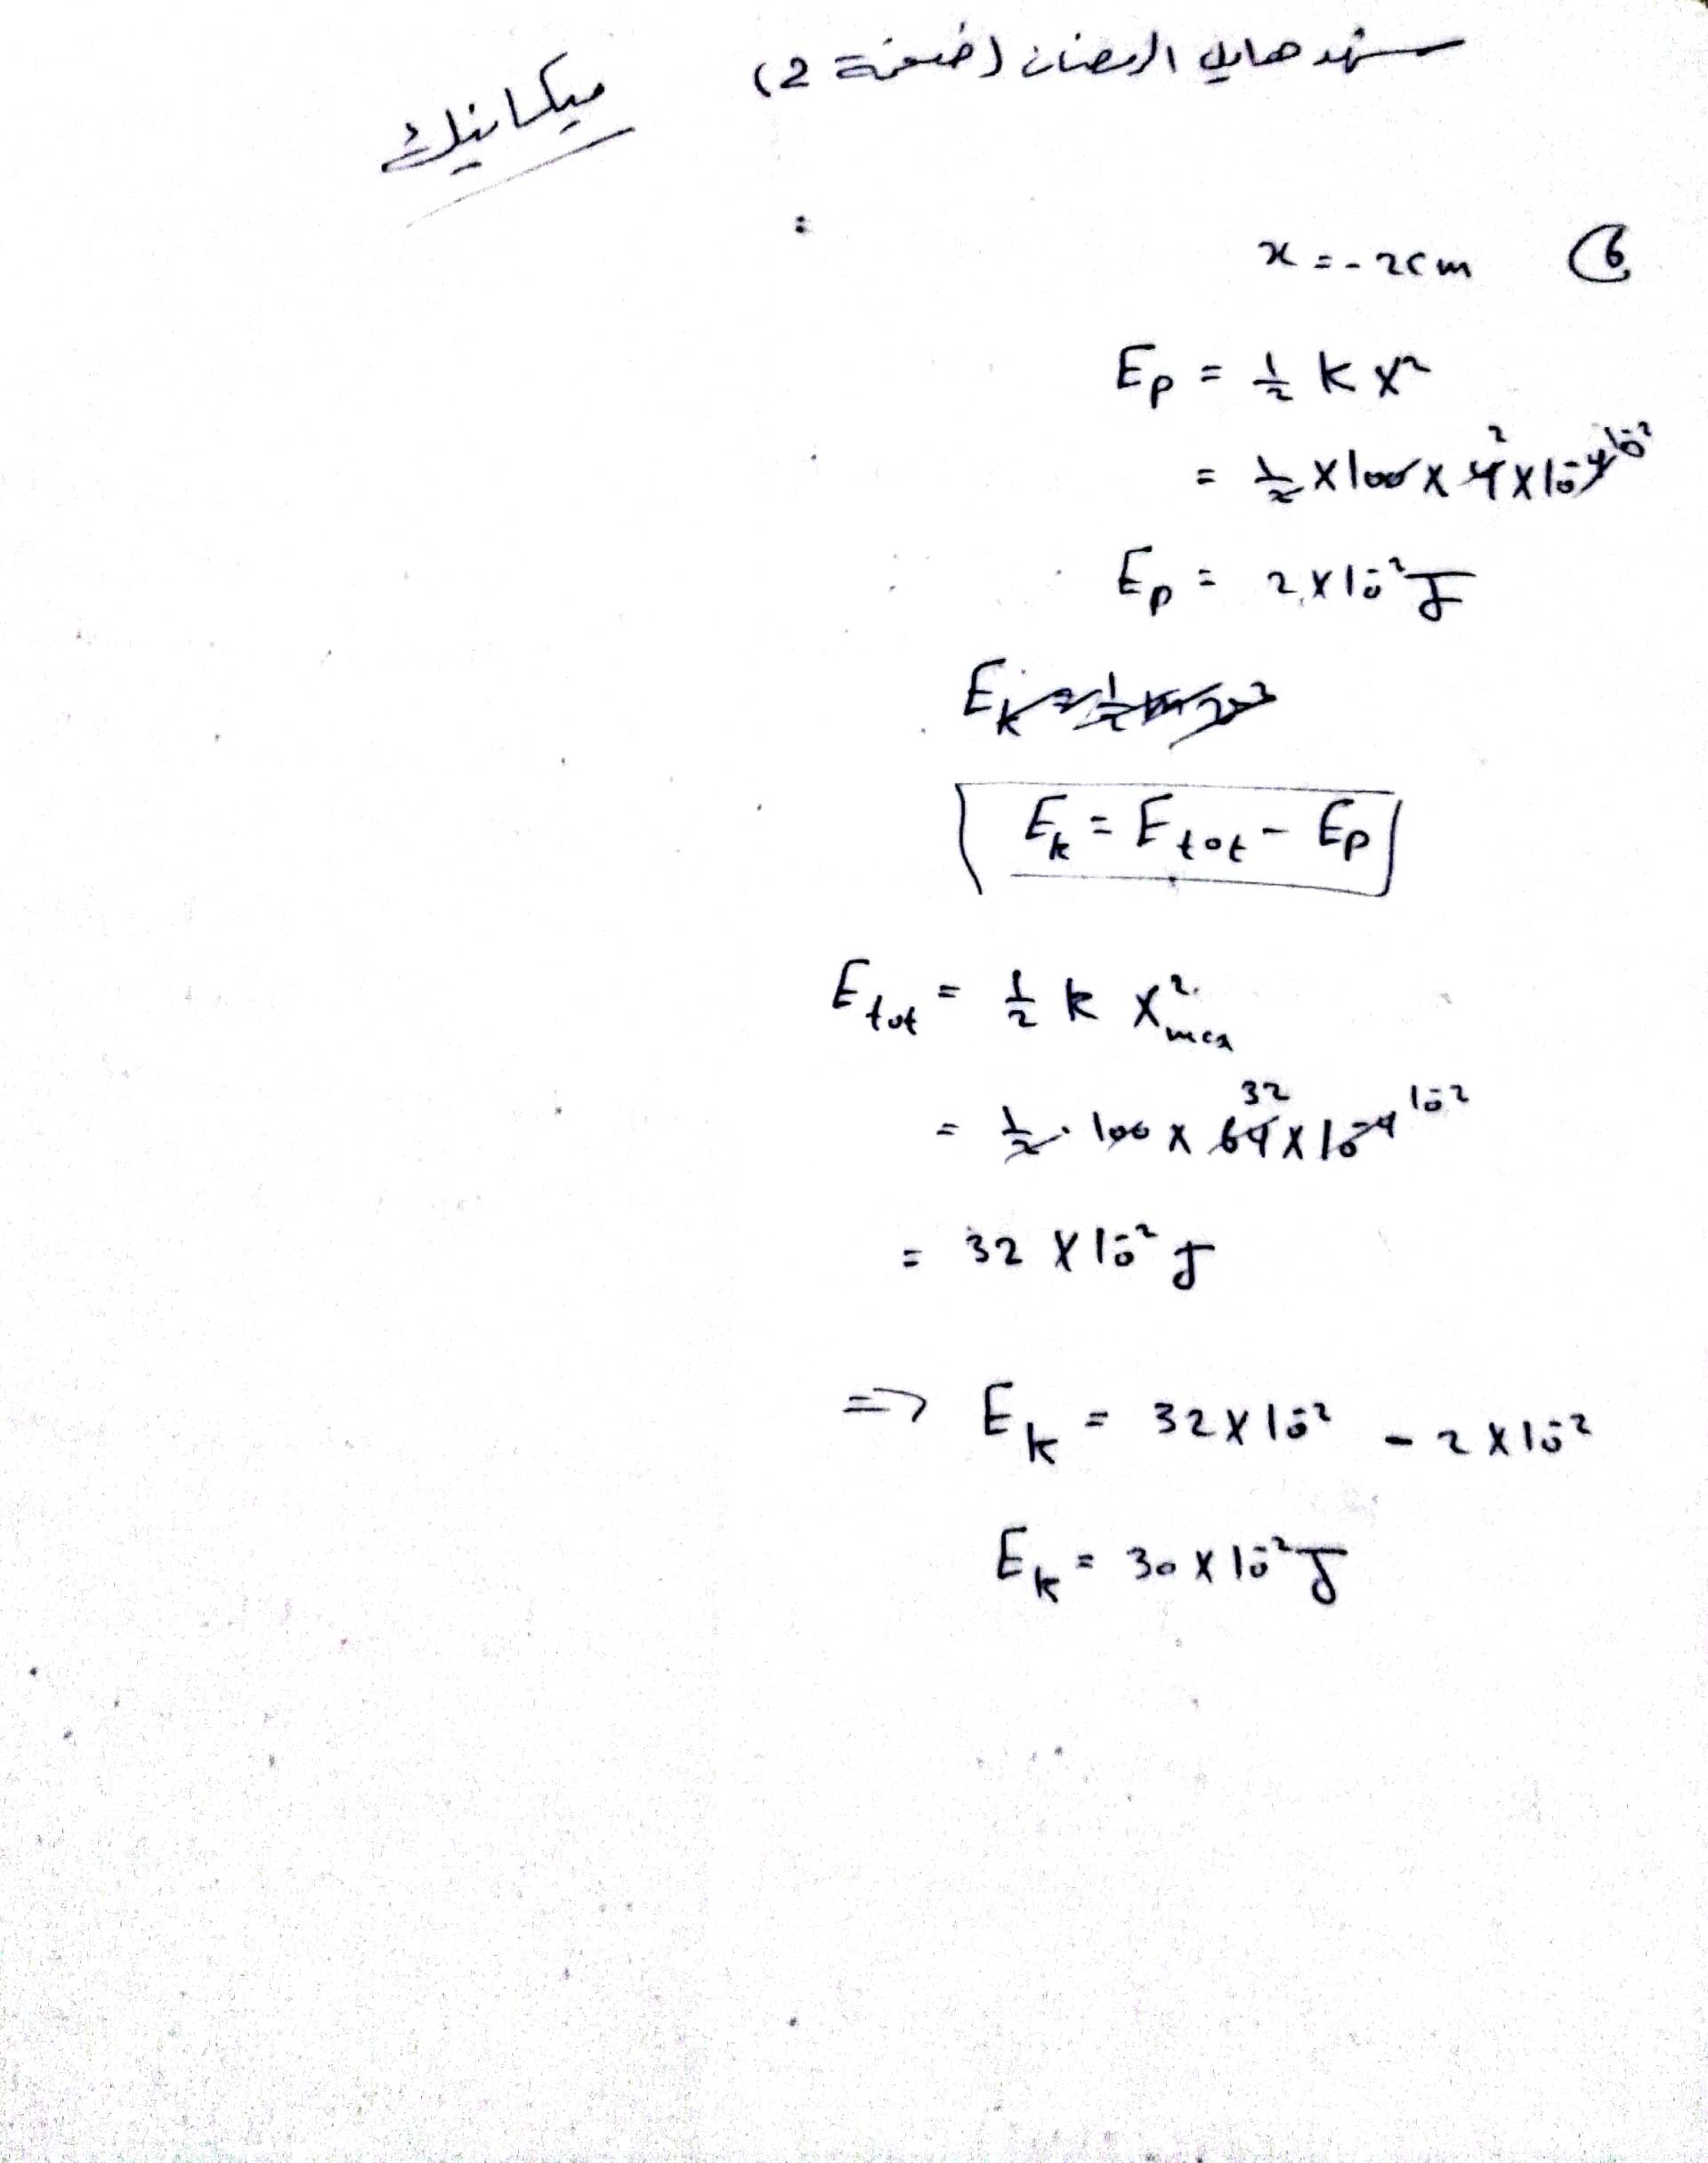 شهد هايل الرمضان (صفحة 2)
ميكانيك
6
x = - 2cm
Ep = 1/2 k x²
= 1/2 × 100 × 4 2 × 10⁻⁴ 10⁻²
Ep = 2 × 10⁻² J
Ek = 1/2
Ek = Etot - Ep
Etot = 1/2 k x²max
= 1/2 · 100 × 64 32 × 10⁻⁴ 10⁻²
= 32 × 10⁻² J
=> Ek = 32 × 10⁻² - 2 × 10⁻²
Ek = 30 × 10⁻² J